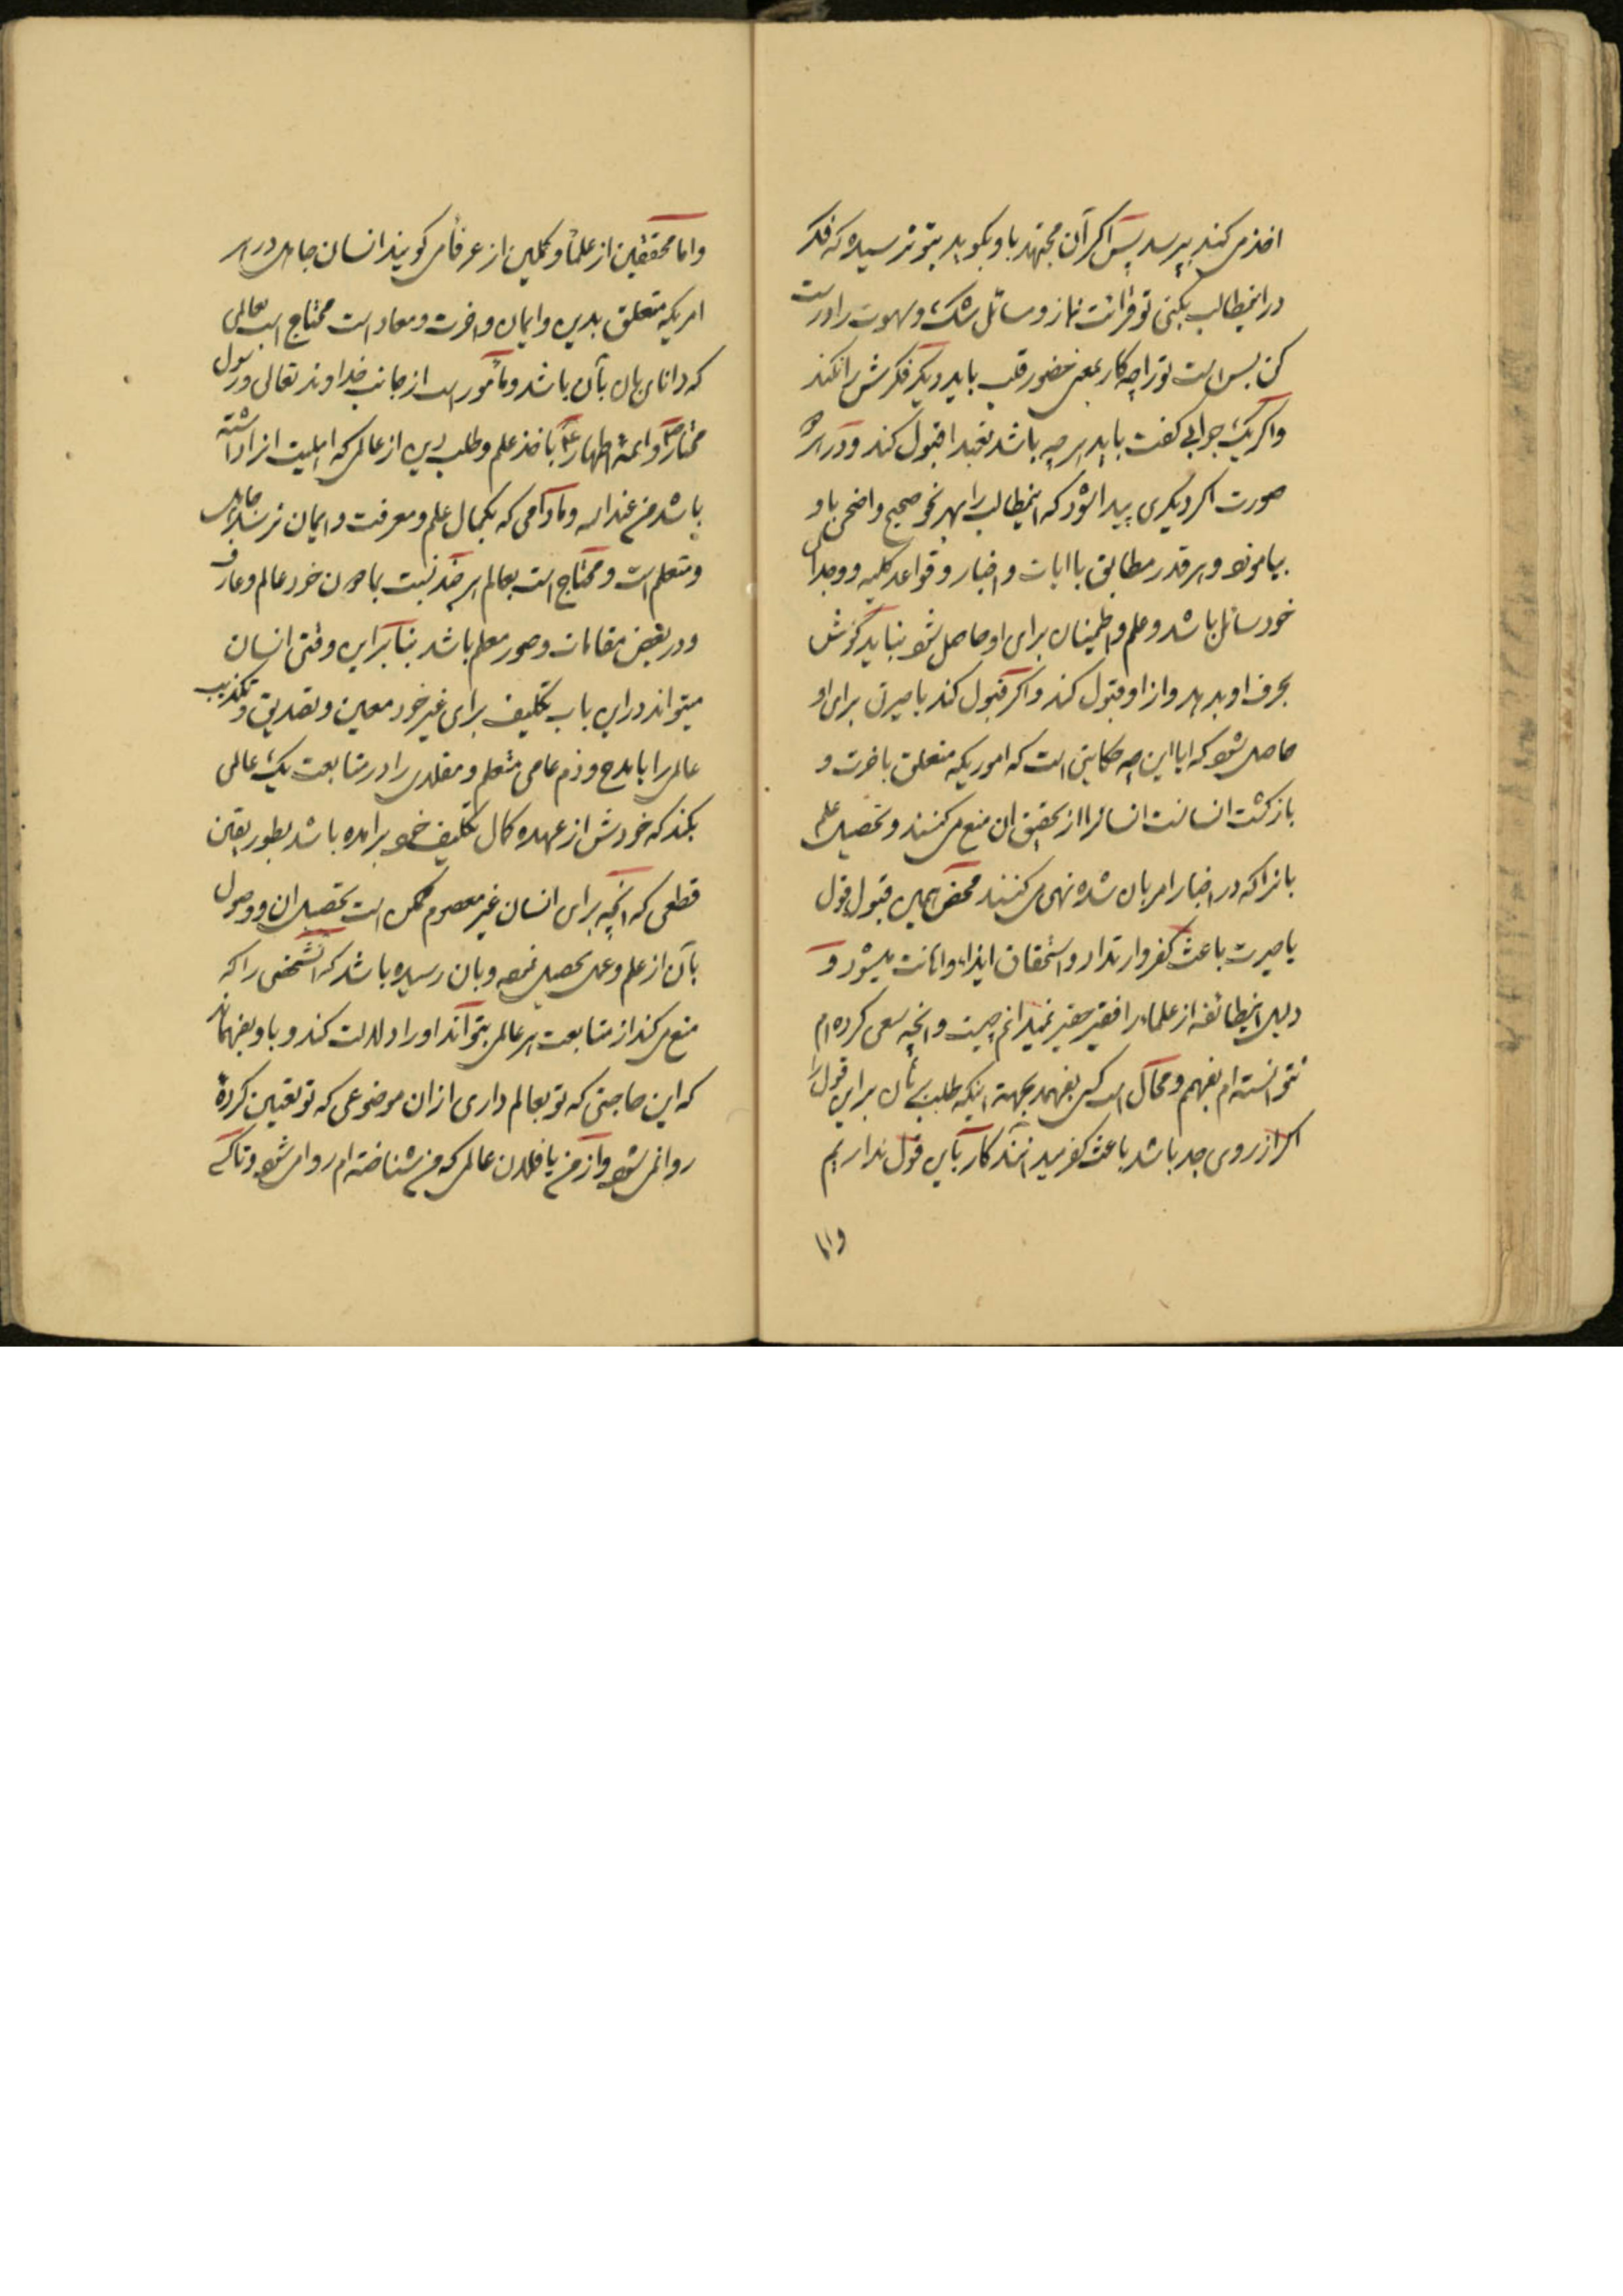 اخذ می کند بپرسد پس اگر آن مجتهد باو بگوید بتو نرسیده که فکر
در اینمطالب بکنی تو قرائت نماز و مسائل شک و سهوت را درست
کن بس است تو را چه کار بمعنی حضور قلب باید دیگر فکرش را نکند
و اگر یک جوابی گفت باید هر چه باشد تعبدا قبول کند و در هر
صورت اگر دیگری پیدا شود که اینمطالب را بهر نحو صحیح و اضحی باو
بیاموزد و هر قدر مطابق با ایات و اخبار و قواعد کلیه و وجدان
خود سائل باشد و علم و اطمینان برای او حاصل شود نباید گوش
بحرف او بدهد و از او قبول کند و اگر قبول کند با صیرتی برای او
حاصل شود که ایا این چه حکایتی است که اموریکه متعلق باخرت و
بازگشت انسانست انسانرا از تحقیق ان منع می کنند و تحصیل علم
بانرا که در اخبار امر بان شده نهی می کنند محض همین قبول قول
یا صیرت باعث کفر و ارتداد و استحقاق ایذاء و اهانت میشود و
دلیل اینطائفه از علماء را فقیر حقیر نمیدانم چیست و انچه سعی کرده ام
نتوانسته ام بفهمم و محال است کسی بفهمد بجهة اینکه طلب برای این قول را
اگر از روی جد باشد باعث کفر میدانند کار باین قول نداریم
واما
واما محققین از علماء و کملین از عرفا می گویند انسان جاهل در هر
امریکه متعلق بدین و ایمان و اخرت و معاد است محتاج است بعالمی
که دانای بان باشد و مأمور است از جانب خداوند تعالی و رسول
مختار ص و ائمهٔ اطهار ع باخذ علم و طلب دین از عالمی که اهلیت انرا داشته
باشد من عند الله و مادامی که بکمال علم و معرفت و ایمان نرسد جاهل
و متعلم است و محتاج است بعالم هر چند نسبت بمادون خود عالم و عارف
و در بعض مقامات و صور معلم باشد بنابراین وقتی انسان
میتواند در این باب تکلیف برای غیر خود معین و تصدیق و تکذیب
عالمی را یا مدح و ذم عامی متعلم و مقلدی را در متابعت یک عالمی
بکند که خودش از عهده کمال تکلیف خود برامده باشد بطور یقین
قطعی که انچه برای انسان غیر معصوم ممکن است تحصیل ان و وصول
بآن از علم و عمل تحصیل نموده و بان رسیده باشد که انشخصی را که
منع می کند از متابعت هر عالمی بتواند او را دلالت کند و باو بفهماند
که این حاجتی که تو بعالم داری از ان موضوعی که تو تعیین کردهٔ
روا نمی شود و از من یا فلان عالمی که من شناخته ام روا می شود و تا کسی